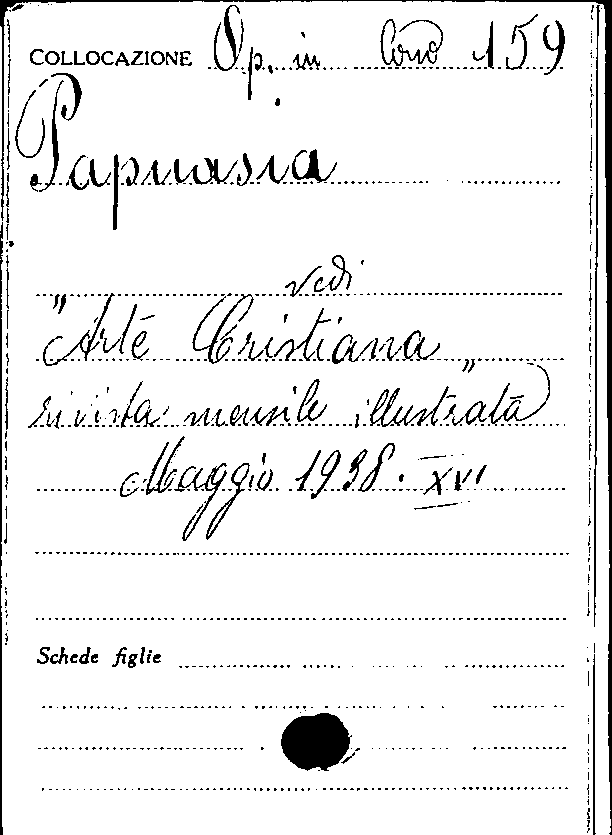 COLLOCAZIONE Op. in 159
Papuasia
vedi
"Arte Cristiana"
rivista mensile illustrata)
Maggio 1938. XVI
Schede figlie